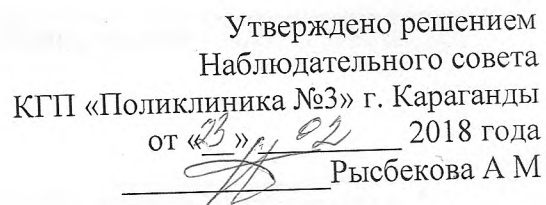 Утверждено решением
Наблюдательного совета
КГП «Поликлиника №3» г. Караганды
от «23» 02 2018 года
Рысбекова А М